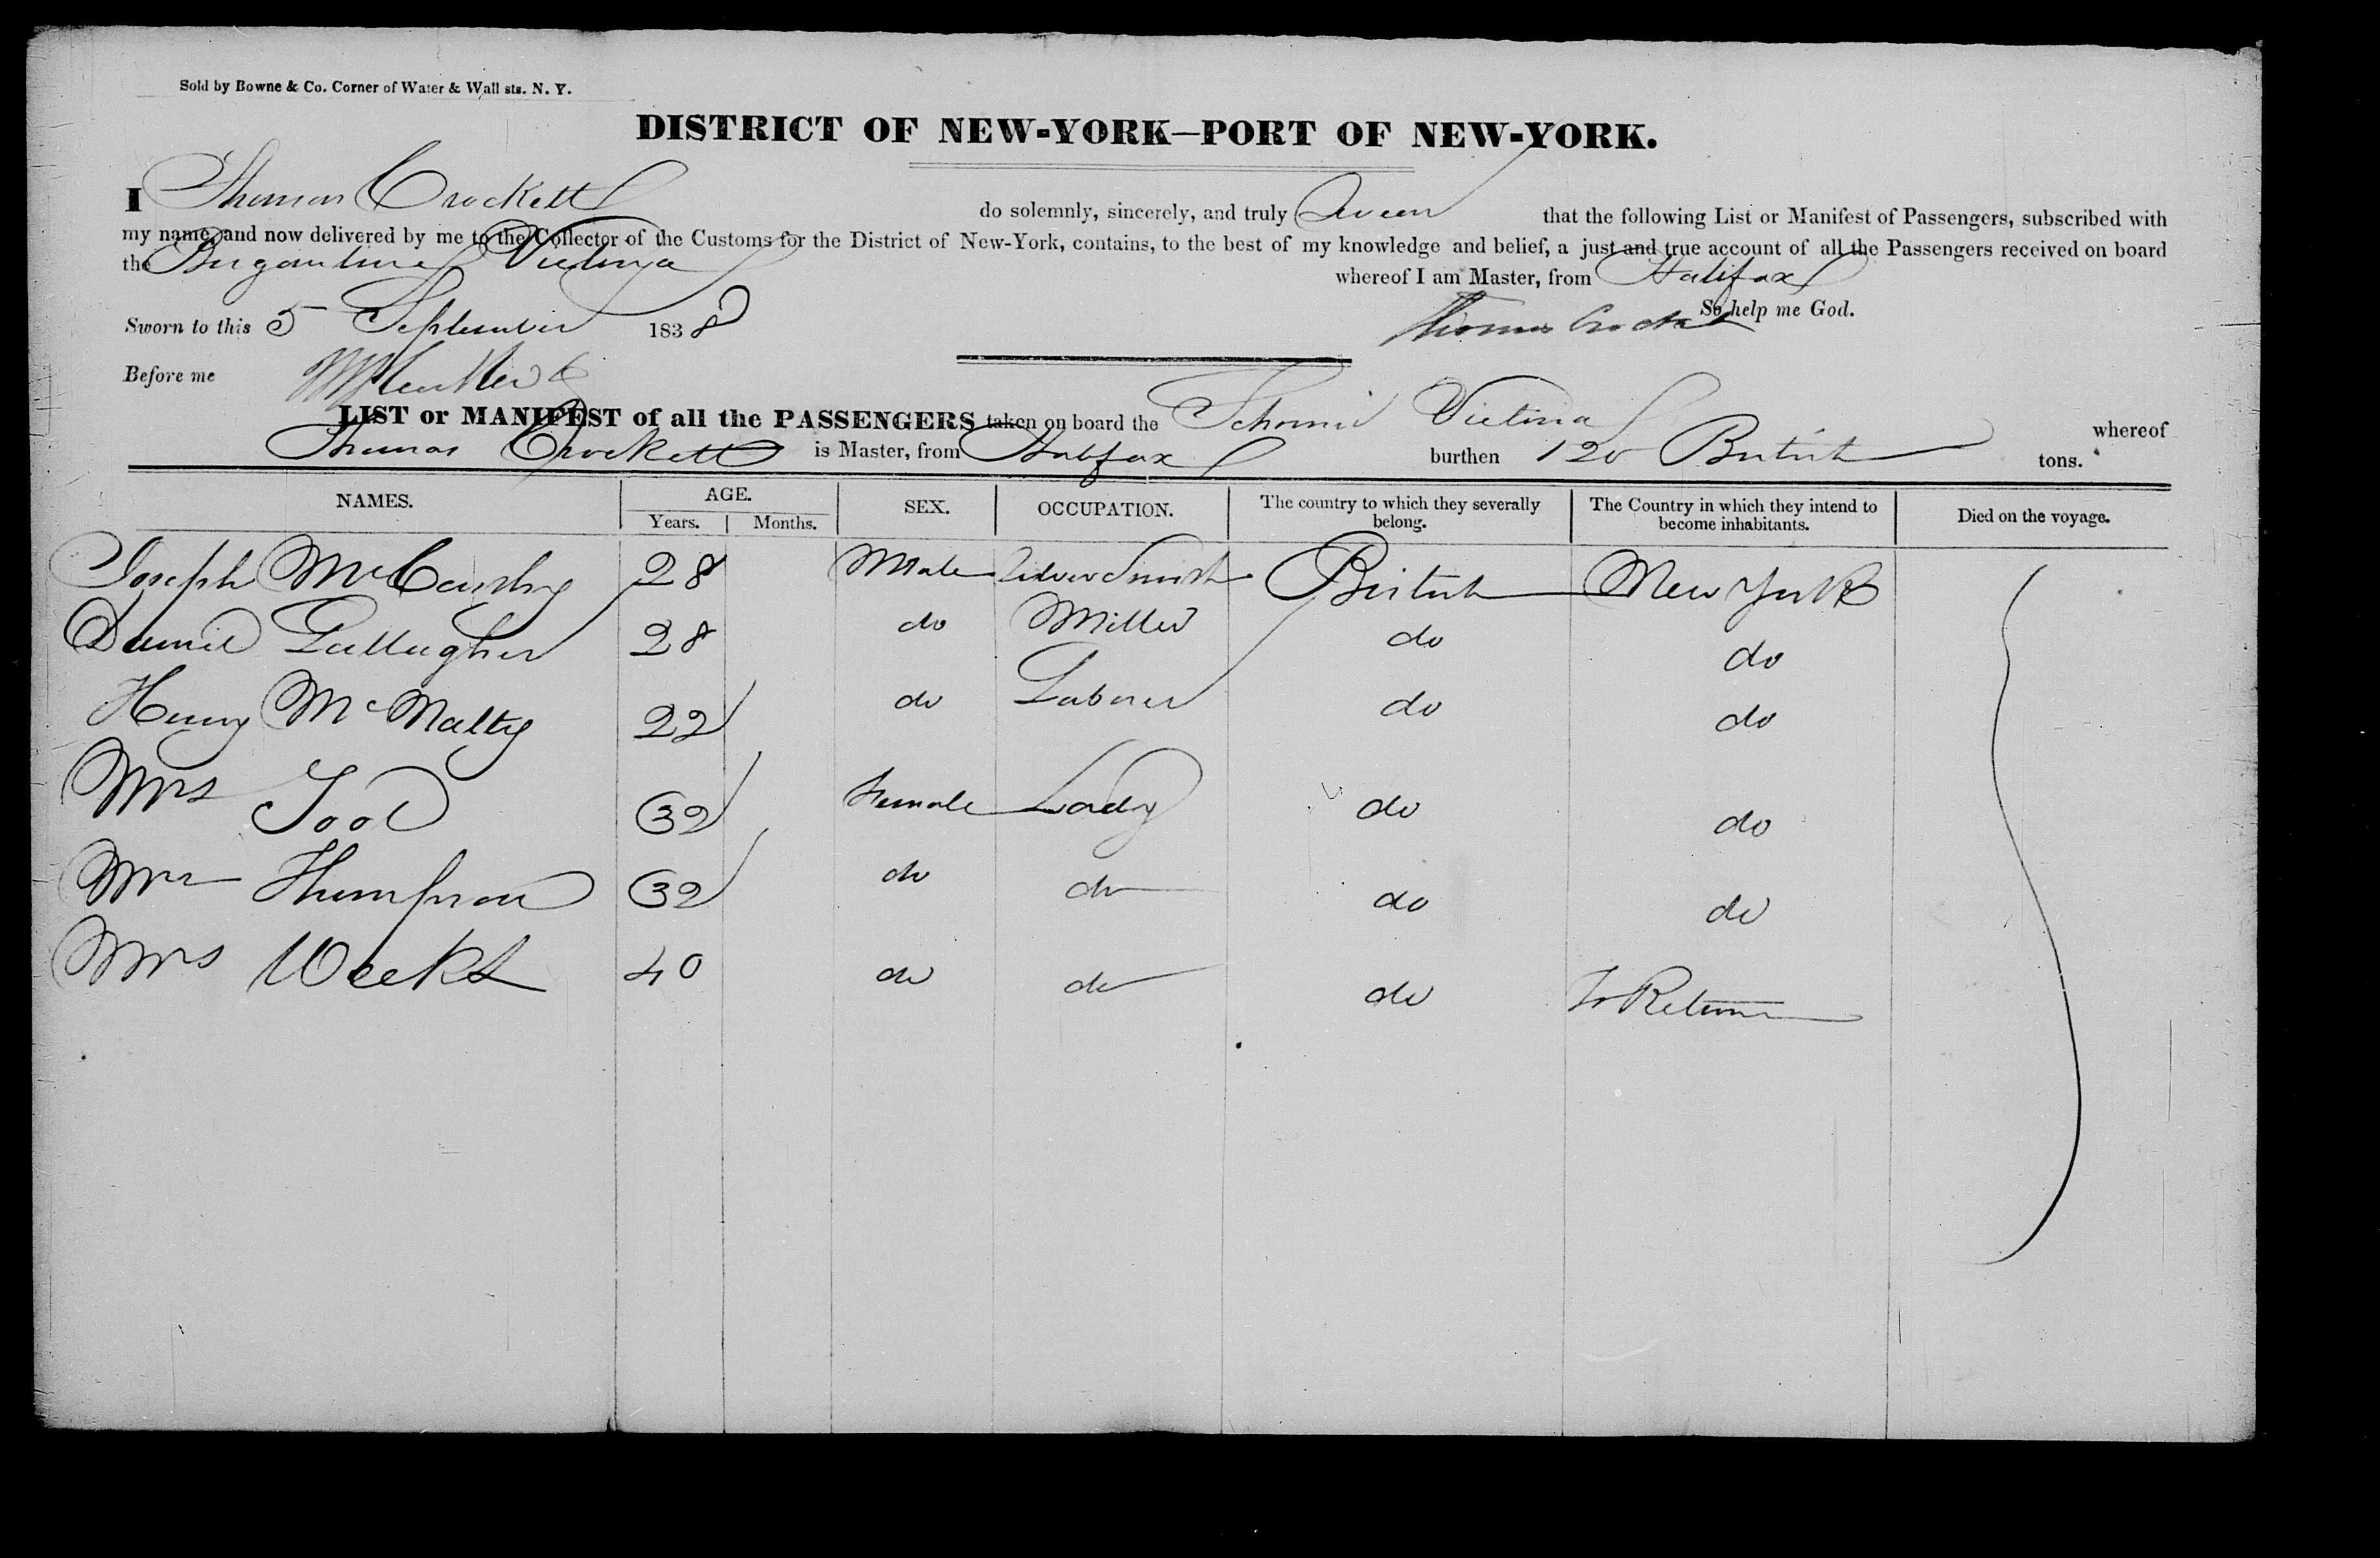 Sold by Bowne & Co. Corner of Water & Wall sts. N. Y.
DISTRICT OF NEW-YORK—PORT OF NEW-YORK.
I Thomas Crockett do solemnly, sincerely, and truly Swear that the following List or Manifest of Passengers, subscribed with
my name, and now delivered by me to the Collector of the Customs for the District of New-York, contains, to the best of my knowledge and belief, a just and true account of all the Passengers received on board
the Brigantine Victorya whereof I am Master, from Halifax
So help me God.
Sworn to this 5 September 1838 Thomas Crockett
Before me
LIST or MANIFEST of all the PASSENGERS taken on board the Schonr Victoria whereof
Thomas Crockett is Master, from Halifax burthen 120 British tons.
NAMES. AGE. SEX. OCCUPATION. The country to which they severally belong. The Country in which they intend to become inhabitants. Died on the voyage.
Years. Months.
Joseph McCarthy 28 Male Silver Smith British New York
Daniel Gallagher 28 do Miller do do
Henry McNalty 22 do Laborer do do
Mrs Tool 32 Female Lady do do
Mrs Thompson 32 do do do do
Mrs Weeks 40 do do do To Return